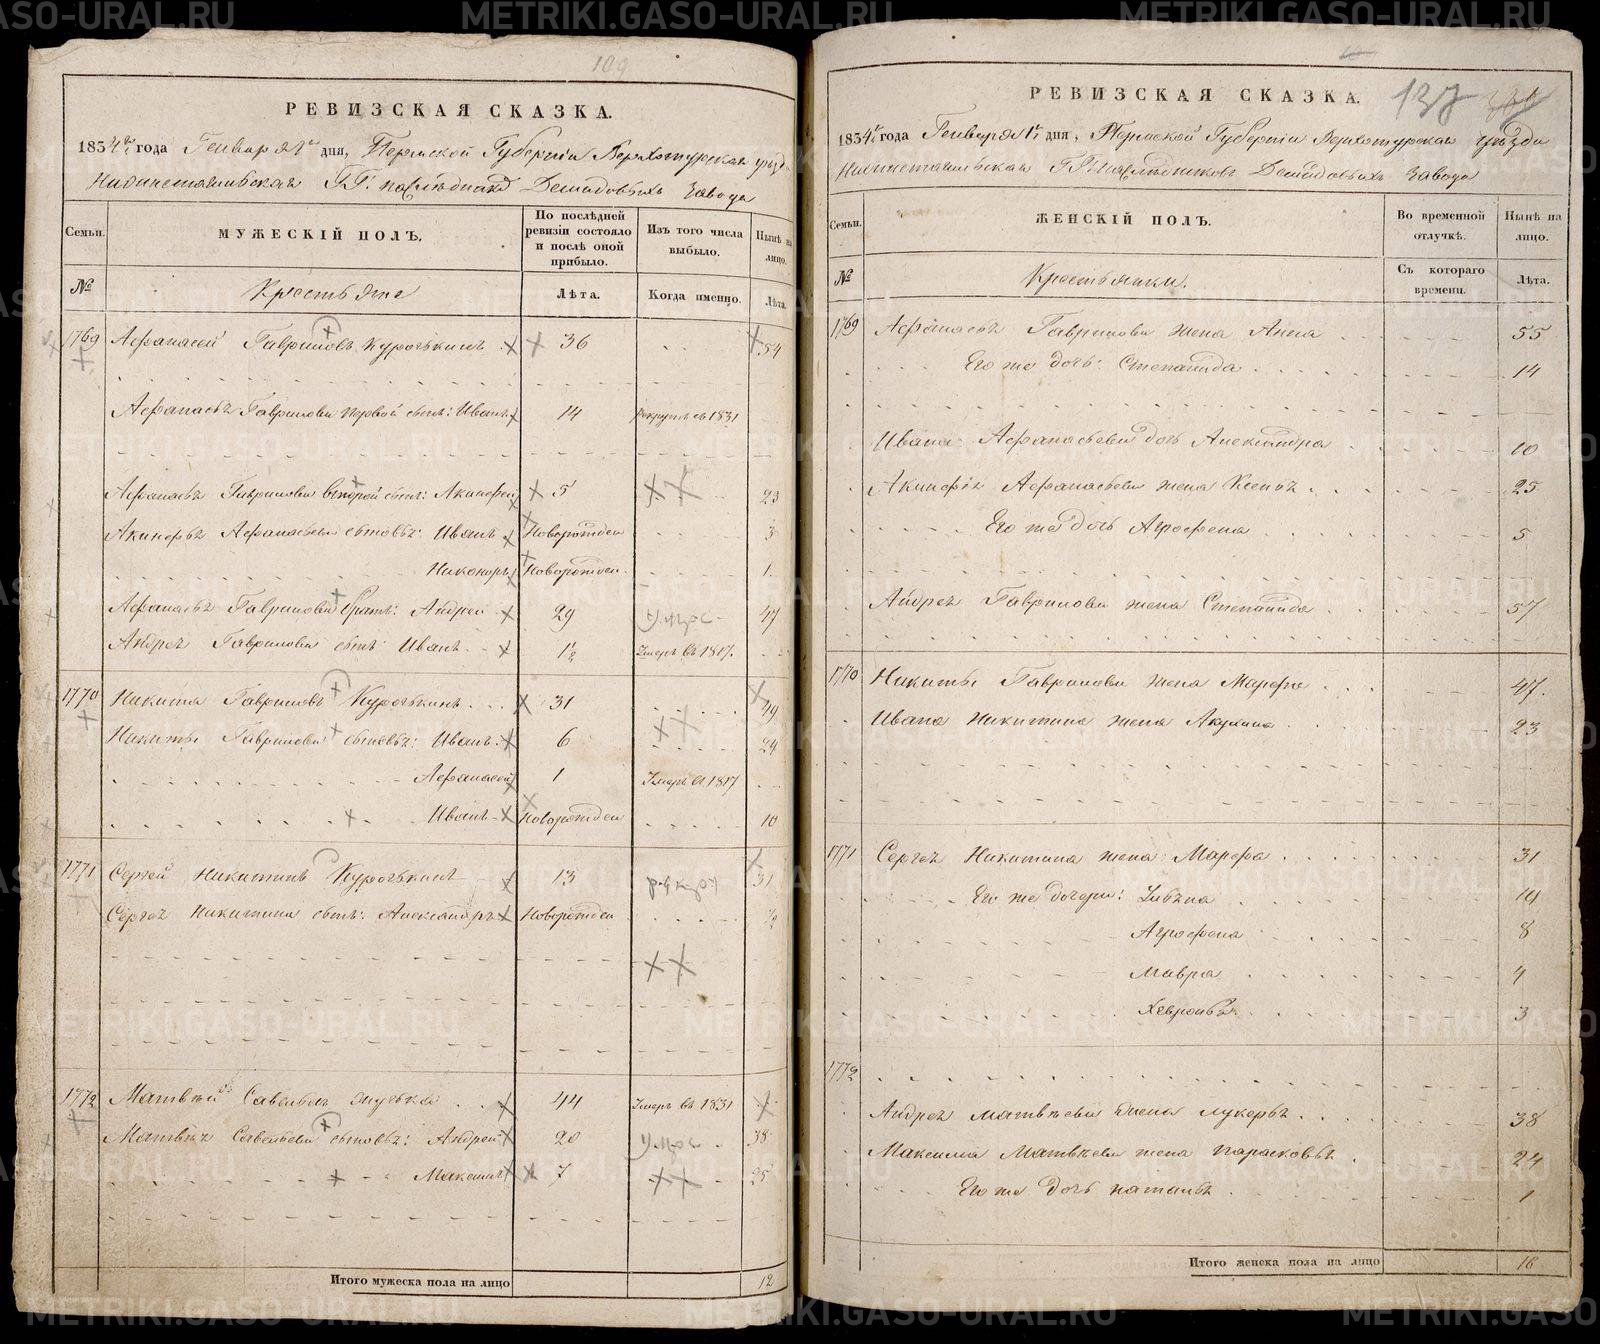 109
РЕВИЗСКАЯ СКАЗКА.
1834го года Генваря 1го дня, Пермской Губернiи Верхотурскаго уезда
Нижнетагильскаго ГГ. наследниковъ Демидовыхъ Завода
Семьи.
МУЖЕСКIЙ ПОЛЪ.
По послѣдней ревизiи состояло и послѣ оной прибыло.
Изъ того числа выбыло.
Нынѣ на лицо.
№
Крестьяне
Лѣта.
Когда именно.
Лѣта.
1769 Афанасей Гавриловъ Курочкинъ 36 54
Афанасья Гаврилова первой сынъ: Иванъ 14 рекрутъ въ 1831
Афанасья Гаврилова второй сынъ: Акинфей 5 23
Акинфья Афанасьева сыновья: Иванъ Новорожден 3
Никоноръ Новорожден. 1.
Афанасья Гаврилова братъ: Андрей 29 47
Андрея Гаврилова сынъ Иванъ 1½ Умеръ въ 1817.
1770 Никита Гавриловъ Курочкинъ 31 49
Никиты Гаврилова сыновья: Иванъ 6 24
Афанасей 1 Умеръ въ 1817
Иванъ Новорожден 10
1771 Сергей Никитинъ Курочкинъ 13 31
Сергея Никитина сынъ: Александръ Новорожден ½
1772 Матвѣй Савельевъ 44 Умеръ въ 1831
Матвѣя Савельева сыновья: Андрей 20 38
Максимъ 7 25
Итого мужеска пола на лицо 12
137
РЕВИЗСКАЯ СКАЗКА.
1834го года Генваря 1го дня, Пермской Губернiи Верхотурскаго уезда
Нижнетагильскаго ГГ. наследниковъ Демидовыхъ Завода
Семьи.
ЖЕНСКIЙ ПОЛЪ.
Во временной отлучкѣ.
Нынѣ на лицо.
№
Крестьянки.
Съ котораго времени.
Лѣта.
1769 Афанасья Гаврилова жена Анна 55
Его же дочь: Степанида 14
Ивана Афанасьева дочь Александра 10
Акинфiя Афанасьева жена Ксенья 25
Его же дочь Агрофена 5
Андрея Гаврилова жена Степанида 57
1770 Никиты Гаврилова жена Марфа 47.
Ивана Никитина жена Акулина 23
1771 Сергея Никитина жена Марфа 31
Его же дочери: Ульяна 14
Агрофена 8
Мавра 4
Хевронья 3
1772
Андрея Матвѣева жена Лукерья 38
Максима Матвѣева жена Парасковья 24
Его же дочь Наталья 1
Итого женска пола на лицо 16
METRIKI.GASO-URAL.RU